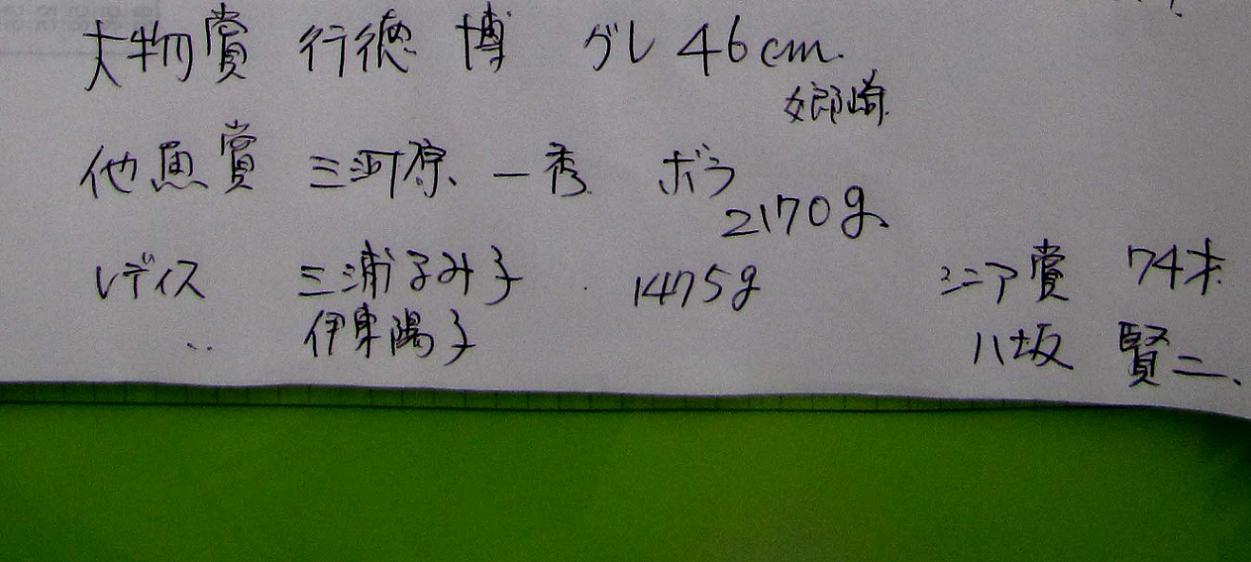 大物賞 行徳 博 グレ 46cm.
女郎崎
他魚賞 三河原 一秀 ボラ
2170g
レディス 三浦るみ子 1475g シニア賞 74才
〃 伊東陽子 八坂 賢二